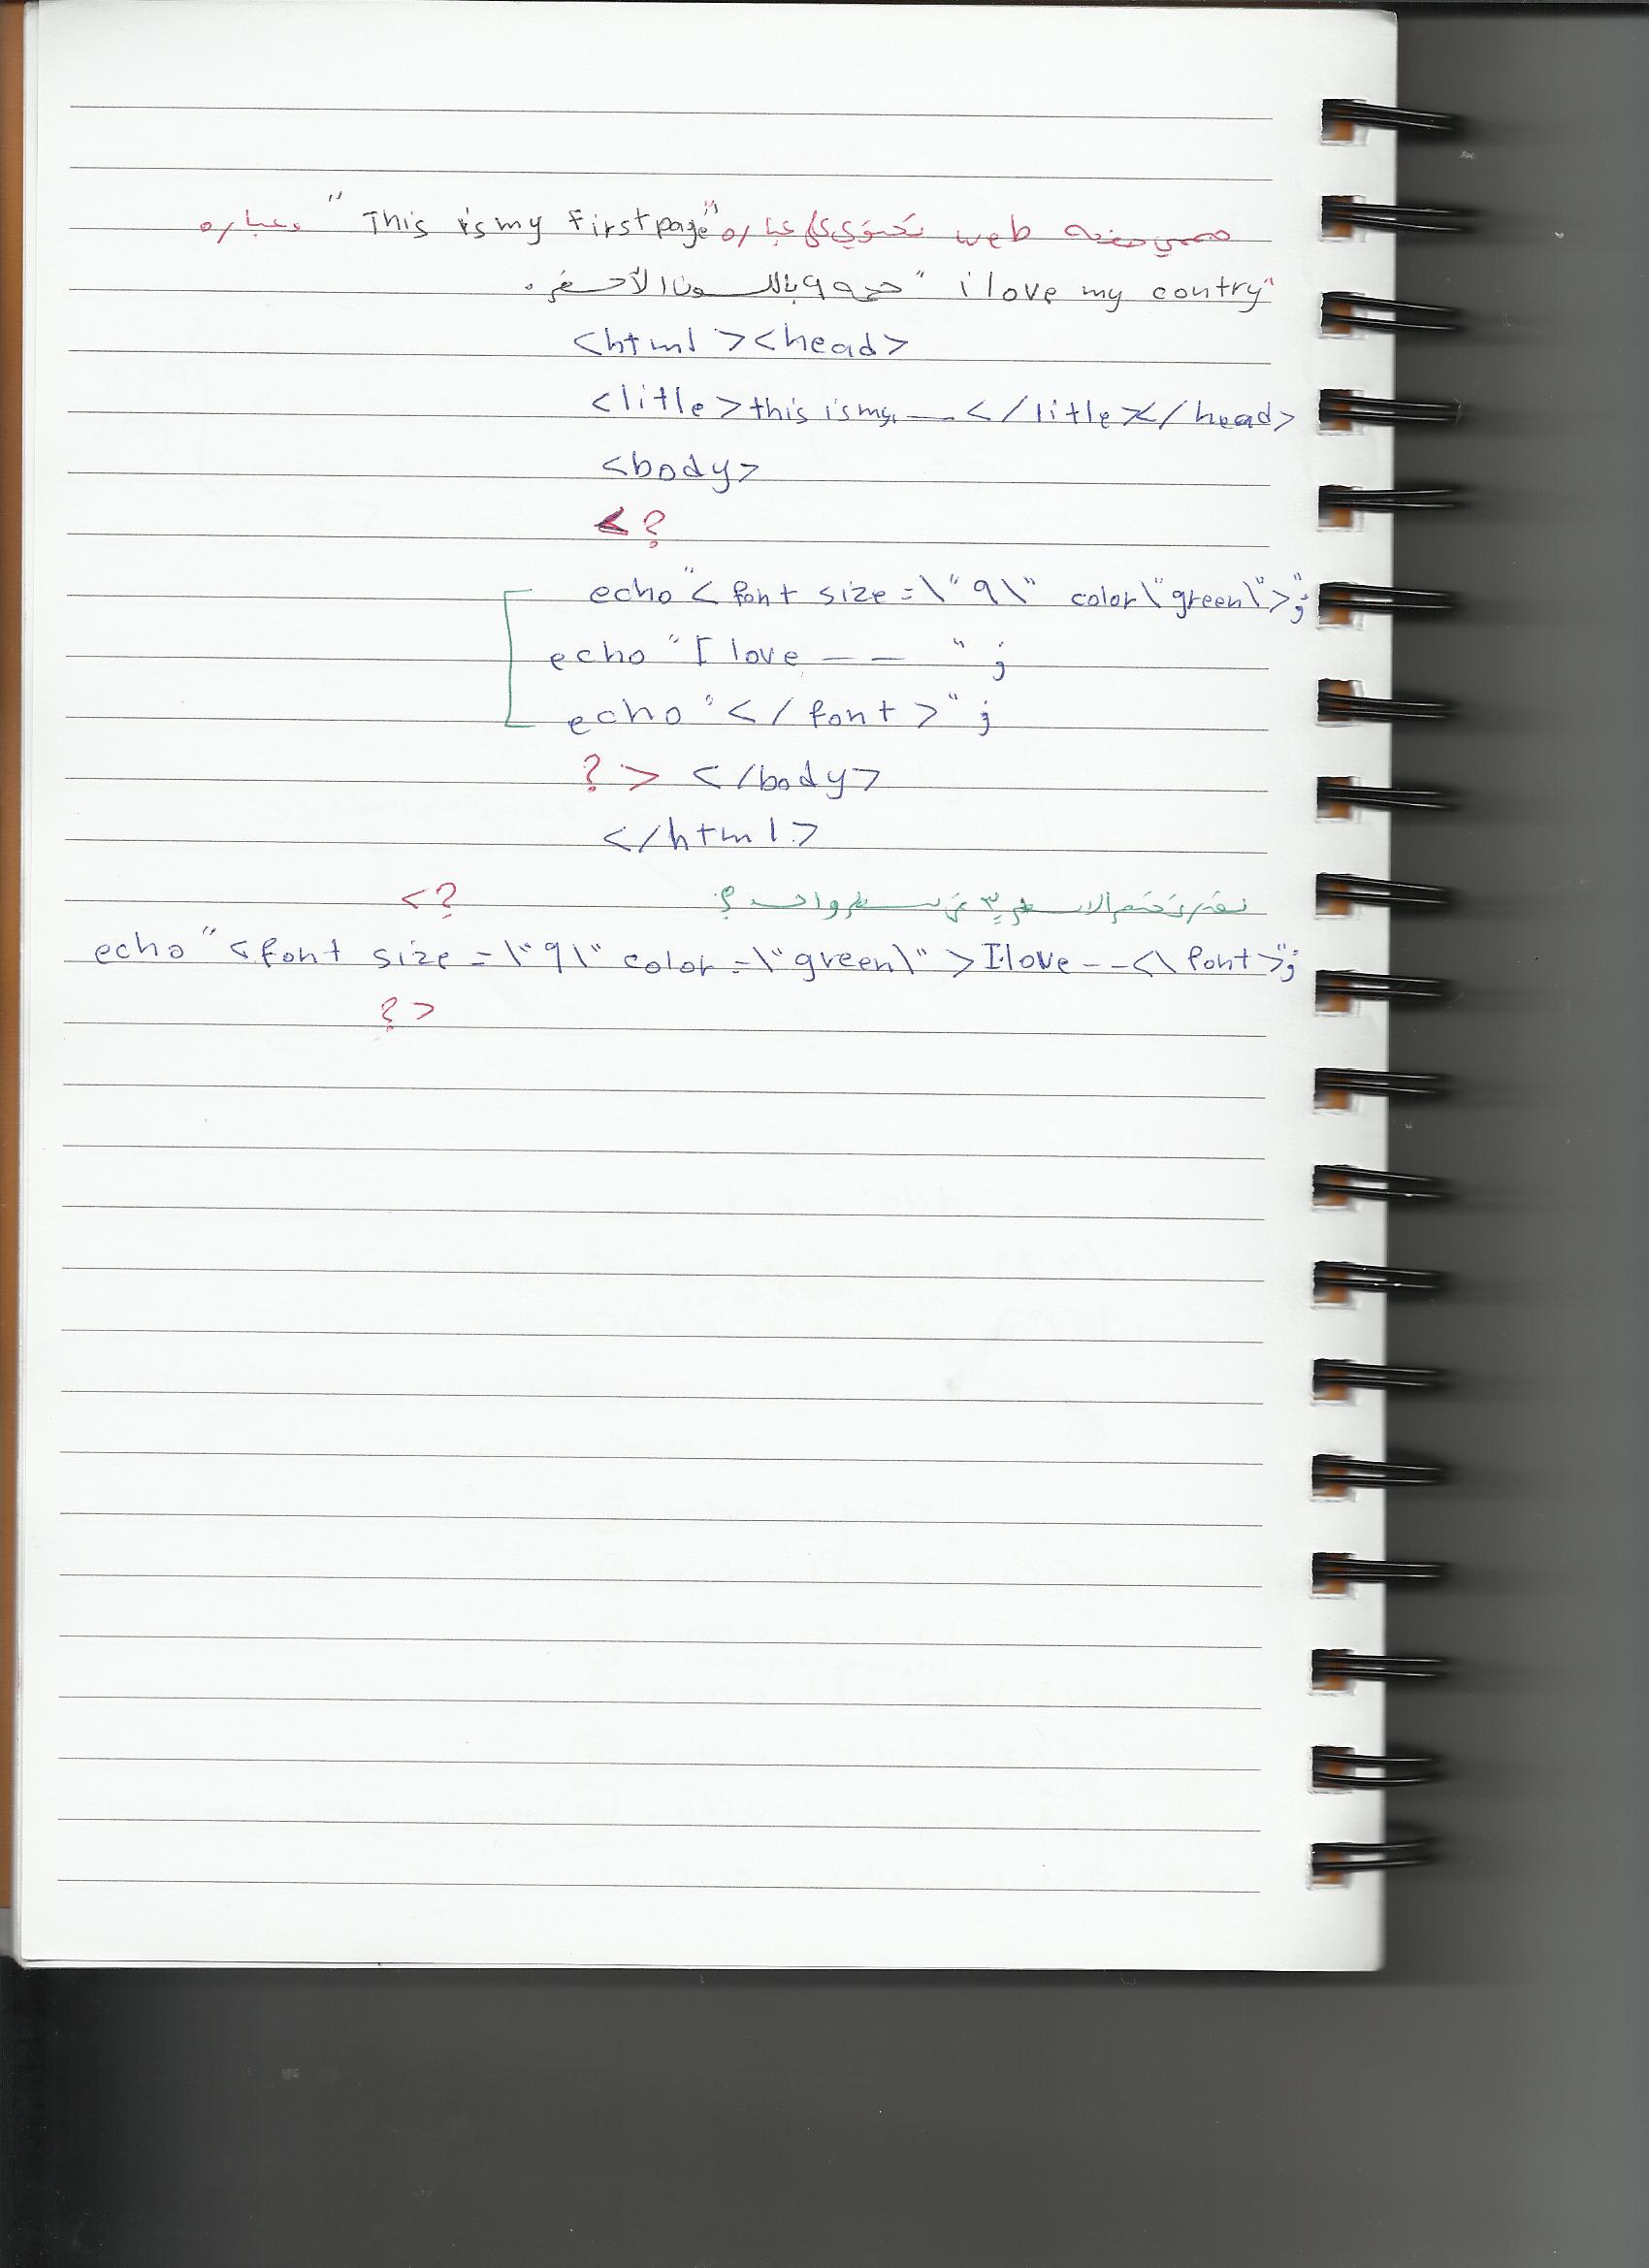 صممي صفحه web تحتوي على عباره "This is my first page" وعباره
"i love my contry" حجمه 9 باللون الأخضر.
<html><head>
<litle>this is my __</litle></head>
<body>
<?
echo"<font size=\"9\" color\"green\">";
echo "I love __ __ ";
echo "</font>";
?> </body>
</html>
نقدر نختم الاسطر ال3 في سطر واحد؟
<?
echo "<font size=\"9\" color=\"green\">I love--<\font>";
?>